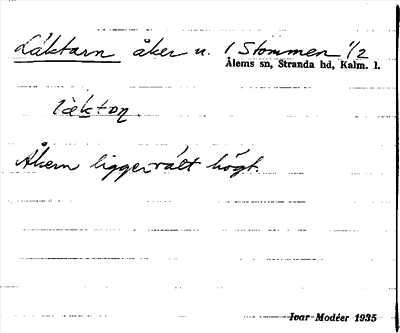 Läktarn åker u. 1 Stommen 1/2
Ålems sn, Stranda hd, Kalm. l.
läktoṇ.
Åkern ligger rätt högt.
Ivar Modéer 1935